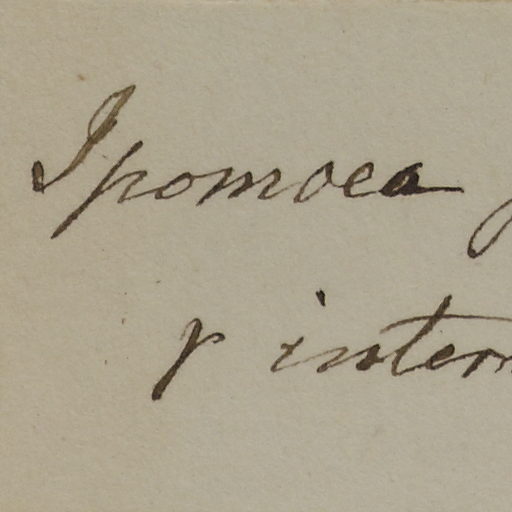 Ipomoea
γ inter